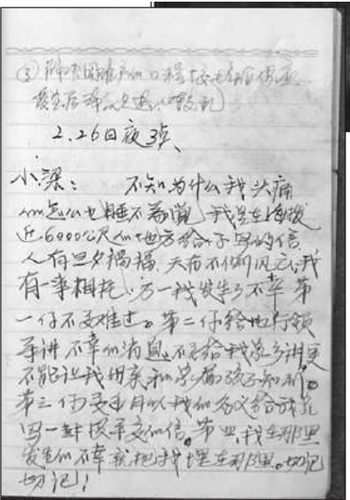 2.26日夜3点
小梁: 不知为什么我头痛
的怎么也睡不着觉 我是在海拔
近6000公尺的地方给你写的信
人有旦夕祸福,天有不测风云,我
有一事相托,万一我发生了不幸 第
一你不要难过。第二你给地行领
导讲 不幸的消息,不要给我家乡讲 更
不能让我母亲和家属孩子知道。
第三你要每月以我的名义给我家
写一封报平安的信。第四,我在那里
发生的不幸就把我埋在那里。切记
切记!